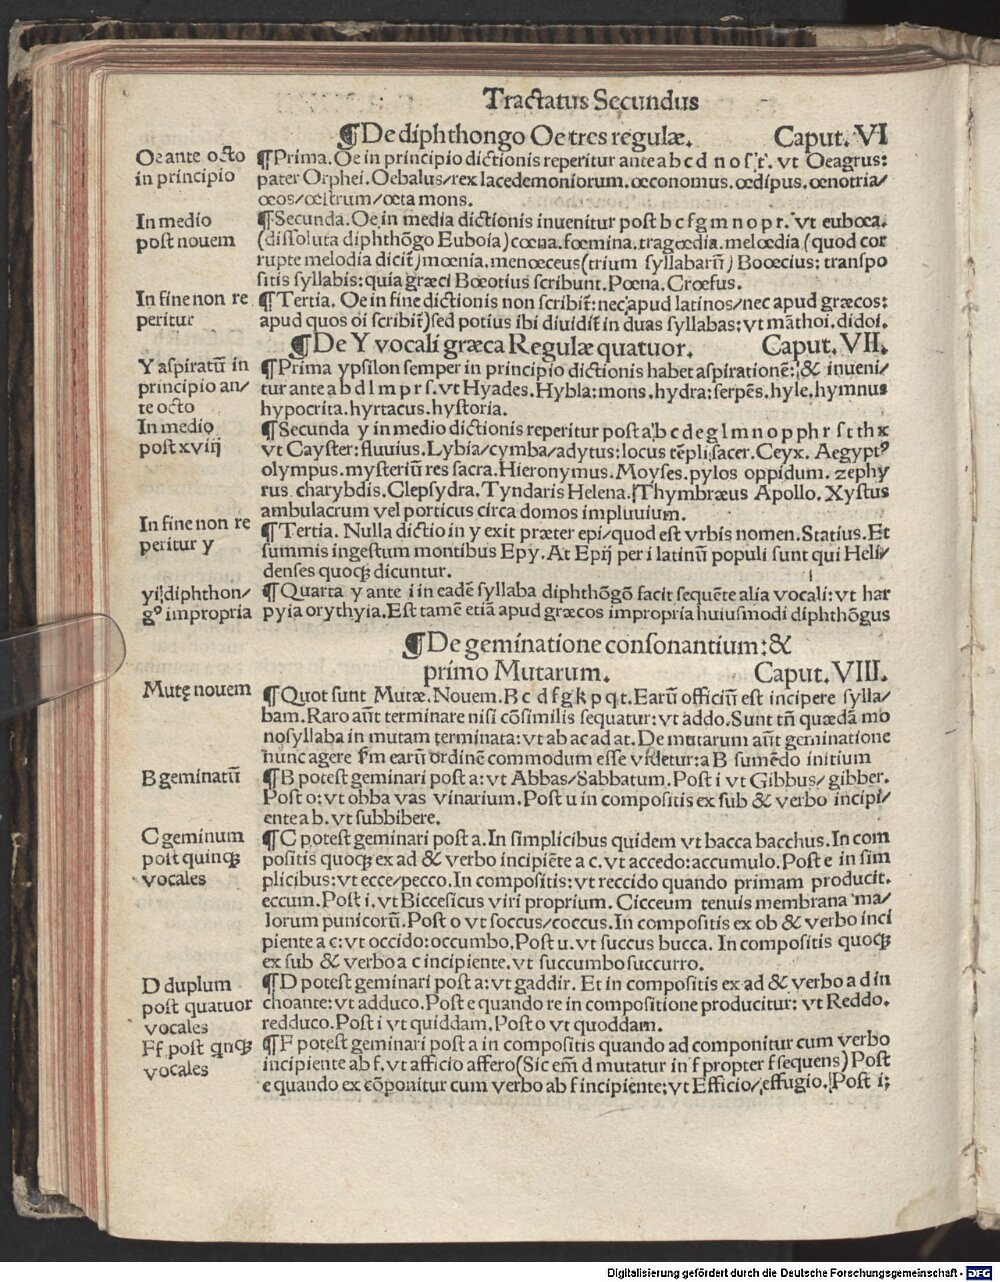 Tractatus Secundus
¶De diphthongo Oe tres regulæ. Caput. VI
Oe ante octo
in principio
¶Prima. Oe in principio dictionis reperitur ante a b c d n o ſ t. vt Oeagrus:
pater Orphei. Oebalus/rex lacedemoniorum. œconomus. œdipus. œnotria/
œos/œſtrum/œta mons.
In medio
poſt nouem
¶Secunda. Oe in media dictionis inuenitur poſt b c f g m n o p r. vt eubœa.
(diſſoluta diphthõgo Euboia) cœna. fœmina. tragœdia. melœdia (quod cor
rupte melodia dicit̃) mœnia. menœceus (trium ſyllabarũ) Boœcius: tranſpo
ſitis ſyllabis: quia græci Bœotius ſcribunt. Pœna. Crœſus.
In fine non re
peritur
¶Tertia. Oe in fine dictionis non ſcribit̃: nec apud latinos/nec apud græcos:
apud quos oi ſcribit̃) ſed potius ibi diuidit̃ in duas ſyllabas: vt mãthoi. didoi.
¶De Y vocali græca Regulæ quatuor. Caput. VII.
Y aſpiratũ in
principio an/
te octo
¶Prima ypſilon ſemper in principio dictionis habet aſpirationẽ: & inueni/
tur ante a b d l m p r ſ. vt Hyades. Hybla: mons. hydra: ſerpẽs. hyle. hymnus
hypocrita. hyrtacus. hyſtoria.
In medio
poſt xviij
¶Secunda y in medio dictionis reperitur poſt a b c d e g l m n o p ph r ſ t th x
vt Cayſter: fluuius. Lybia/cymba/adytus: locus tẽpli ſacer. Ceyx. Aegyptꝰ
olympus. myſteriũ res ſacra. Hieronymus. Moyſes. pylos oppidum. zephy
rus. charybdis. Clepſydra. Tyndaris Helena. Thymbræus Apollo. Xyſtus
ambulacrum vel porticus circa domos impluuium.
In fine non re
peritur y
¶Tertia. Nulla dictio in y exit præter epi/quod eſt vrbis nomen. Statius. Et
ſummis ingeſtum montibus Epy. At Epij per i latinũ populi ſunt qui Heli/
denſes quoqꝫ dicuntur.
yi diphthon/
gꝰ impropria
¶Quarta y ante i in eadẽ ſyllaba diphthõgõ facit ſequẽte alia vocali: vt har
pyia orythyia. Eſt tamẽ etiã apud græcos impropria huiuſmodi diphthõgus
¶De geminatione conſonantium: &
primo Mutarum. Caput. VIII.
Mutę nouem
¶Quot ſunt Mutæ. Nouem. B c d f g k p q t. Earũ officiũ eſt incipere ſylla/
bam. Raro aũt terminare niſi cõſimilis ſequatur: vt addo. Sunt tñ quædã mo
noſyllaba in mutam terminata: vt ab ac ad at. De mutarum aũt geminatione
nunc agere ẜm earũ ordinẽ commodum eſſe videtur: a B ſumẽdo initium
B geminatũ
¶B poteſt geminari poſt a: vt Abbas/Sabbatum. Poſt i vt Gibbus/gibber.
Poſt o: vt obba vas vinarium. Poſt u in compoſitis ex ſub & verbo incipi/
ente a b. vt ſubbibere.
C geminum
poſt quinqꝫ
vocales
¶C poteſt geminari poſt a. In ſimplicibus quidem vt bacca bacchus. In com
poſitis quoqꝫ ex ad & verbo incipiẽte a c. vt accedo: accumulo. Poſt e in ſim
plicibus: vt ecce/pecco. In compoſitis: vt reccido quando primam producit.
eccum. Poſt i. vt Bicceſicus viri proprium. Cicceum tenuis membrana ma/
lorum punicorũ. Poſt o vt ſoccus/coccus. In compoſitis ex ob & verbo inci
piente a c: vt occido: occumbo. Poſt u. vt ſuccus bucca. In compoſitis quoqꝫ
ex ſub & verbo a c incipiente. vt ſuccumbo ſuccurro.
D duplum
poſt quatuor
vocales
¶D poteſt geminari poſt a: vt gaddir. Et in compoſitis ex ad & verbo a d in
choante: vt adduco. Poſt e quando re in compoſitione producitur: vt Reddo.
redduco. Poſt i vt quiddam. Poſt o vt quoddam.
Ff poſt qnqꝫ
vocales
¶F poteſt geminari poſt a in compoſitis quando ad componitur cum verbo
incipiente ab f. vt afficio affero (Sic em̃ d mutatur in f propter f ſequens) Poſt
e quando ex cõponitur cum verbo ab f incipiente: vt Efficio/effugio. Poſt i:
Digitalisierung gefördert durch die Deutsche Forschungsgemeinschaft - DFG